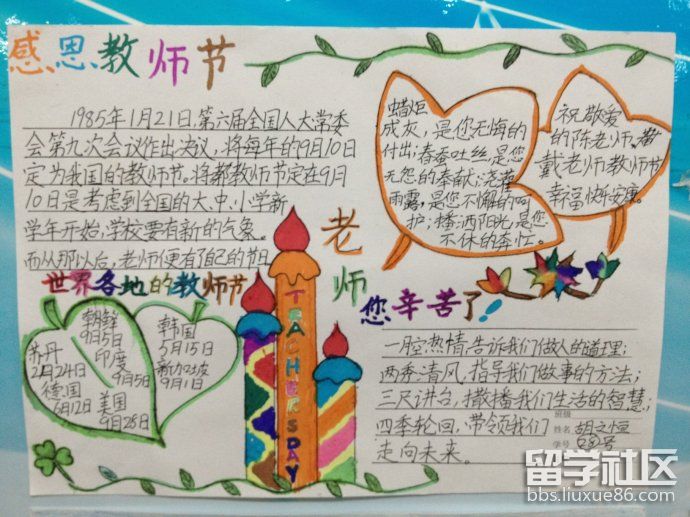 感恩教师节
1985年1月21日,第六届全国人大常委
会第九次会议作出决议,将每年的9月10日
定为我国的教师节。将都教师节定在9月
10日是考虑到全国的大、中、小学新
学年开始,学校要有新的气象。
而从那以后,老师便有了自己的节日
蜡炬
成灰,是您无悔的
付出;春蚕吐丝,是您
无怨的奉献;浇灌
雨露,是您不懈的呵
护;播洒阳光,是您
不休的奔忙。
祝敬爱
的陈老师、戴
戴老师教师节
幸福快乐安康。
老师
您辛苦了!
世界各地的教师节
朝鲜
9月5日
苏丹
2月24日
印度
9月5日
德国
6月12日
美国
9月28日
韩国
5月15日
新加坡
9月1日
TEACHERS DAY
一腔热情,告诉我们做人的道理;
两季清风,指导我们做事的方法;
三尺讲台,撒播我们生活的智慧;
四季轮回,带领我们
走向未来。
班级
姓名 胡文恒
学号
留学社区
bbs.liuxue86.com